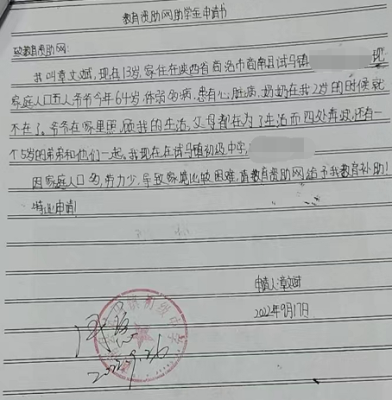 教育资助网助学金申请书
致教育资助网:
我叫章文斌,现在13岁,家住在陕西省商洛市商南县试马镇
家庭人口五人爷爷今年64岁体弱多病,患有心脏病,奶奶在我2岁的时候就
不在了,爷爷在家里照顾我的生活,父母都在为了生活而四处奔波,还有一
个5岁的弟弟和他们一起。我现在在试马镇初级中学,
因家庭人口多,劳力少,导致家境比较困难,请教育资助网给予我教育补助!
特此申请!
申请人:章文斌
2022年9月17日
2022.9.26